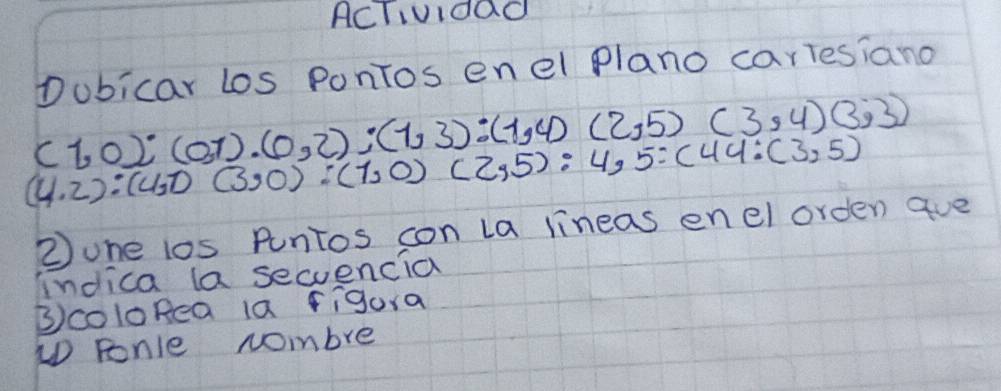 Actividad
1) ubicar los Pontos en el plano cartesiano
(1,0); (0,1).(0,2);(1,3):(1,4) (2,5) (3,4)(3,3)
(4.2):(4,1) (3,0):(1,0) (2,5): 4,5:(44:(3,5)
2) une los Puntos con la líneas en el orden que
indica la secuencia
3) coloRea la figura
4) Ponle Nombre